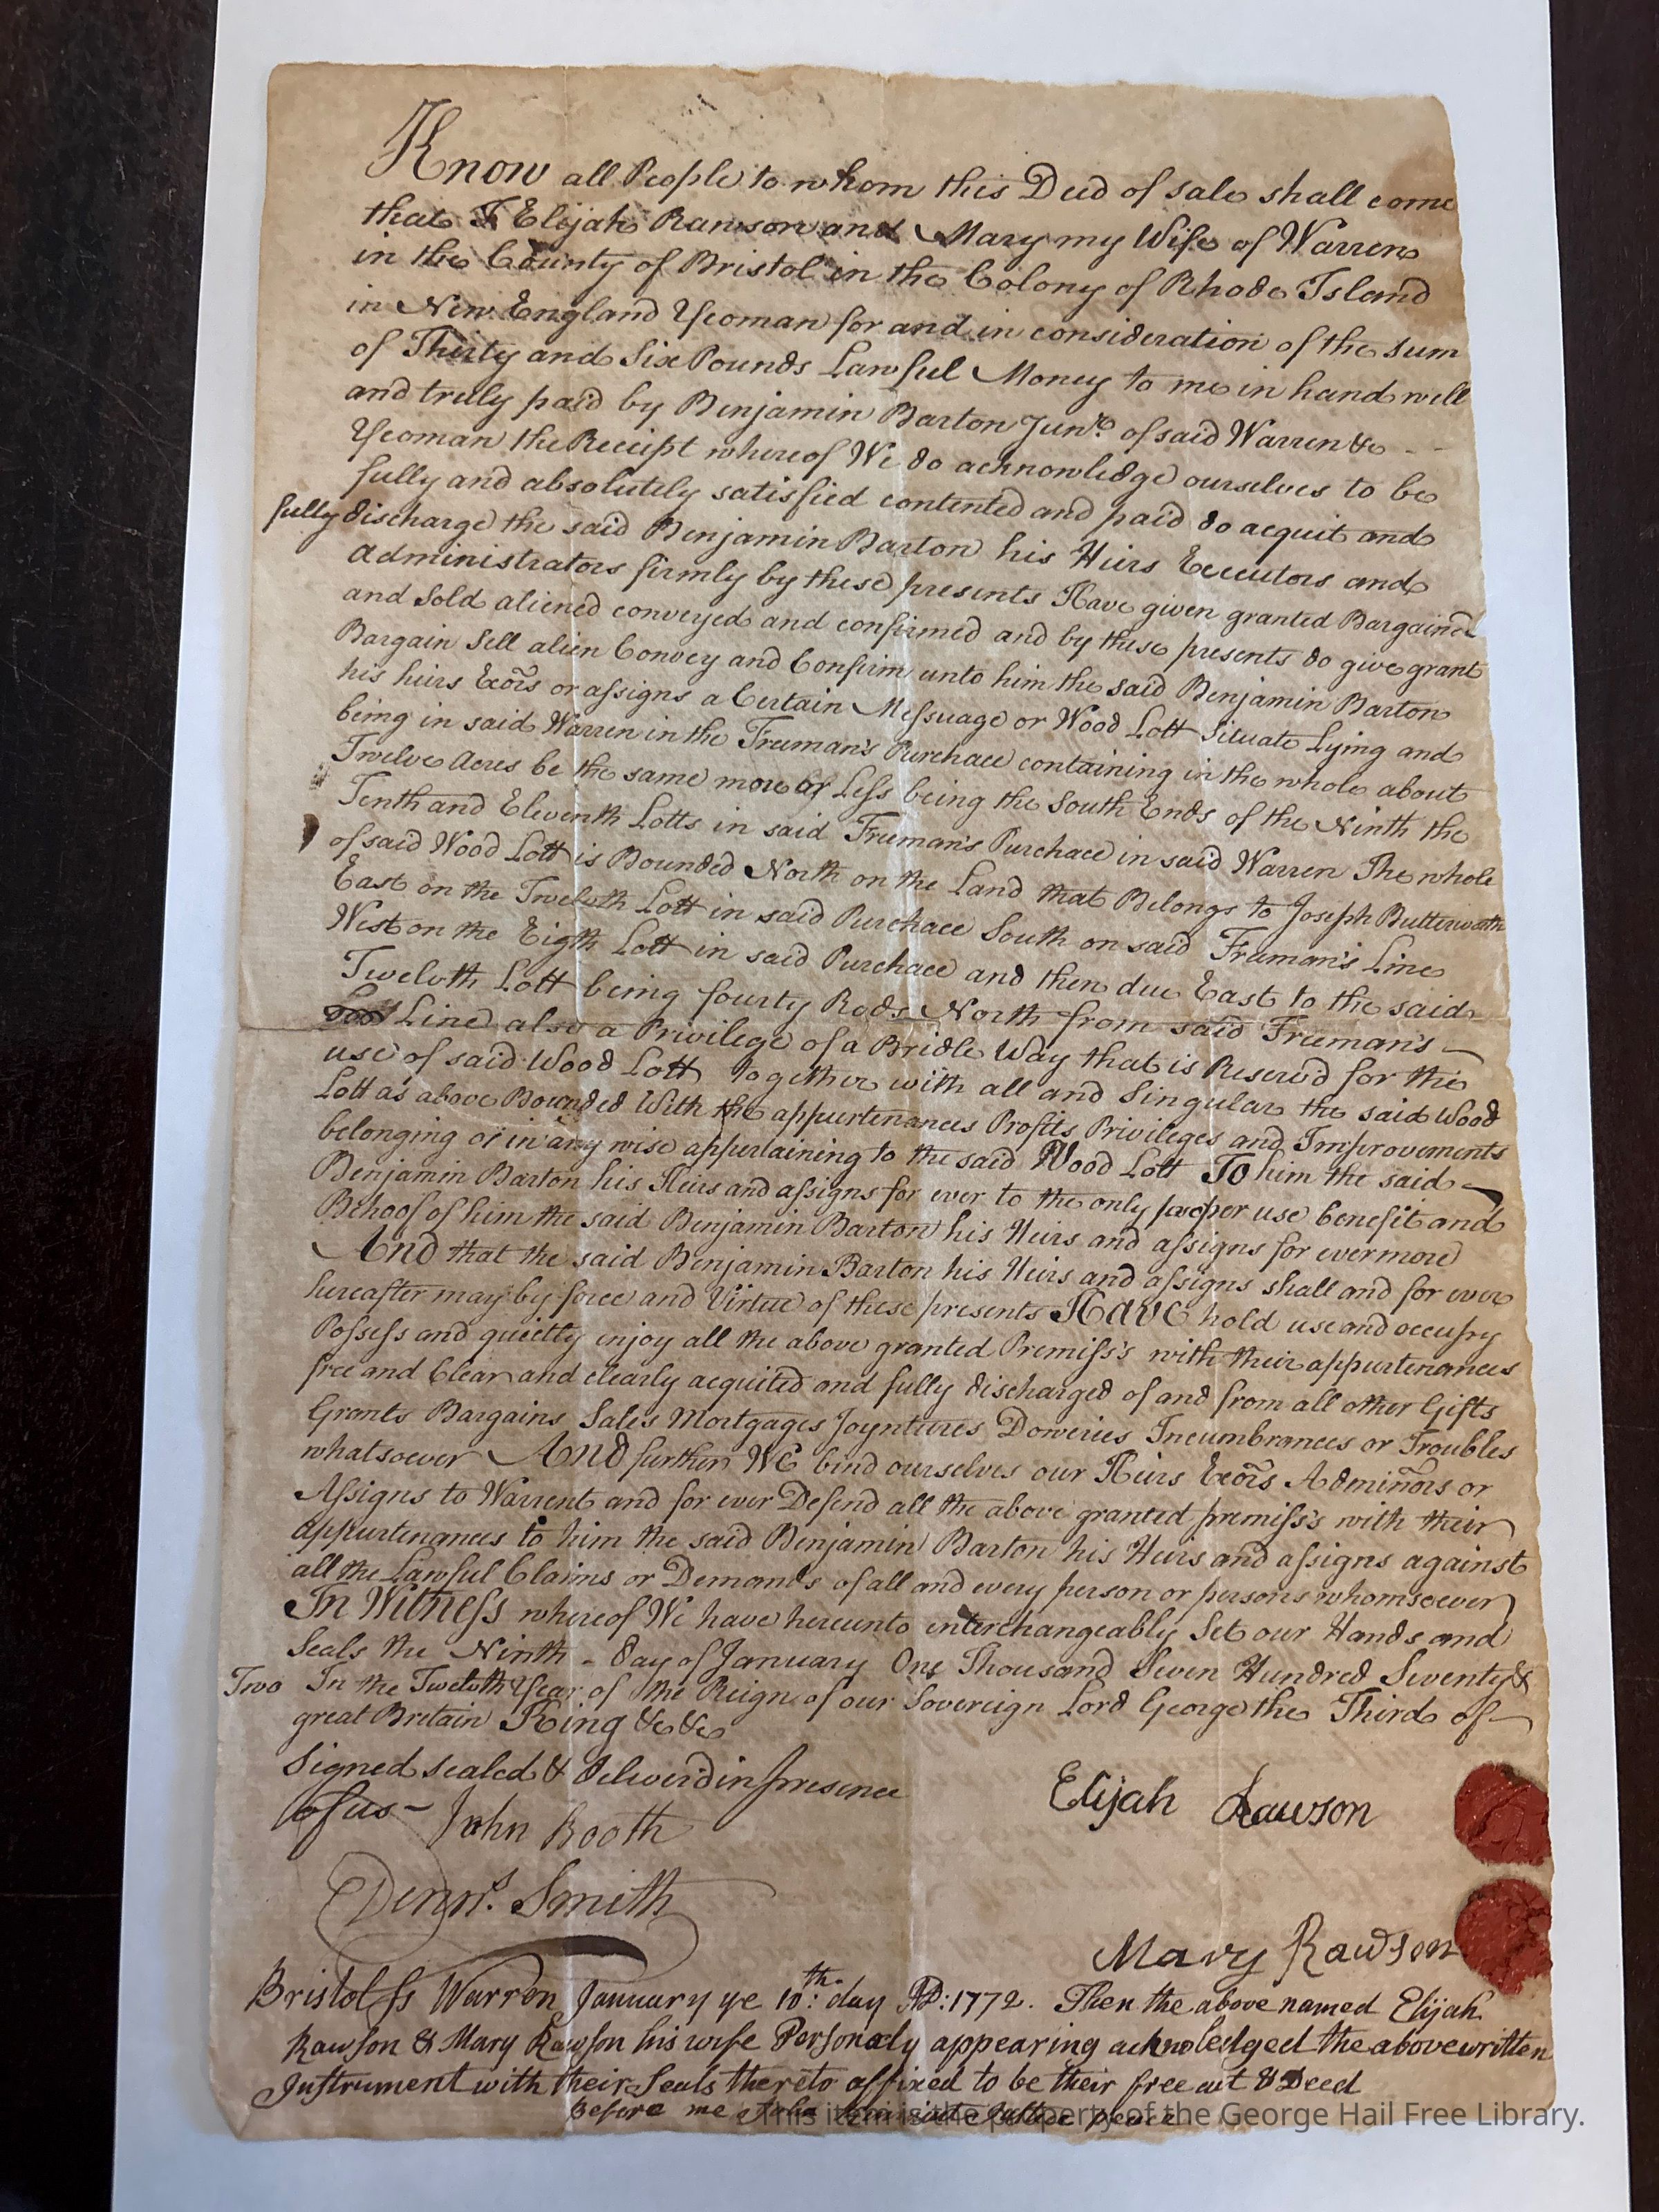 Know all People to whom this Deed of sale shall come
that I Elijah Rawson and Mary my Wife of Warren
in the County of Bristol in the Colony of Rhode Island
in New England Yeoman for and in consideration of the sum
of Thirty and Six Pounds Lawful Money to me in hand well
and truly paid by Benjamin Barton Junr. of said Warren &c - -
Yeoman the Receipt whereof We do acknowledge ourselves to be
fully and absolutely satisfied contented and paid do acquit and
fully discharge the said Benjamin Barton his Heirs Executors and
Administrators firmly by these presents Have given granted Bargained
and Sold aliened conveyed and confirmed and by these presents do give grant
Bargain Sell alien Convey and Confirm unto him the said Benjamin Barton
his heirs Exors or assigns a Certain Messuage or Wood Lott Situate Lying and
being in said Warren in the Freeman's Purchace containing in the whole about
Twelve Acres be the same more or Less being the South Ends of the Ninth the
Tenth and Eleventh Lotts in said Freeman's Purchace in said Warren The whole
of said Wood Lott is Bounded North on the Land that Belongs to Joseph Butterworth
East on the Twelvth Lott in said Purchace South on said Freman's Line
West on the Eigth Lott in said Purchace and then due East to the said
Twelvth Lott being fourty Rods North from said Freeman's
Line also a Privilege of a Bridle Way that is Reserv'd for the
use of said Wood Lott Together with all and Singular the said Wood
Lott as above Bounded With the appurtenances Profits Privileges and Improvements
belonging or in any wise appertaining to the said Wood Lott To him the said
Benjamin Barton his Heirs and assigns for ever to the only proper use benefit and
Behoof of him the said Benjamin Barton his Heirs and assigns for evermore
And that the said Benjamin Barton his Heirs and assigns shall and for ever
hereafter may by force and Virtue of these presents Have hold use and occupy
Possess and quietly enjoy all the above granted Premiss's with their appurtenances
free and Clear and clearly acquited and fully discharged of and from all other Gifts
Grants Bargains Sales Mortgages Joyntures Doweries Incumbrances or Troubles
whatsoever And further We bind ourselves our Heirs Exors Adminors or
Assigns to Warrent and for ever Defend all the above granted premiss's with their
appurtenances to him the said Benjamin Barton his Heirs and assigns against
all the Lawful Claims or Demands of all and every person or persons whomsoever
In Witness whereof We have hereunto interchangeably Set our Hands and
Seals the Ninth - day of January One Thousand Seven Hundred Seventy &
Two In the Twelvth Year of the Reign of our Sovereign Lord George the Third of
great Bretain King &c &c
Signed sealed & Deliverd in presence
of us -
John Rooth
Elijah Rawson
Denns. Smith
Mary Rawson
Bristol ss Warren January ye 10th: day AD: 1772. Then the above named Elijah
Rawson & Mary Rawson his wife Personaly appearing acknoledged the above written
Instrument with their Seals thereto affixed to be their free act & Deed
Before me John Justice peace
This item is the property of the George Hail Free Library.